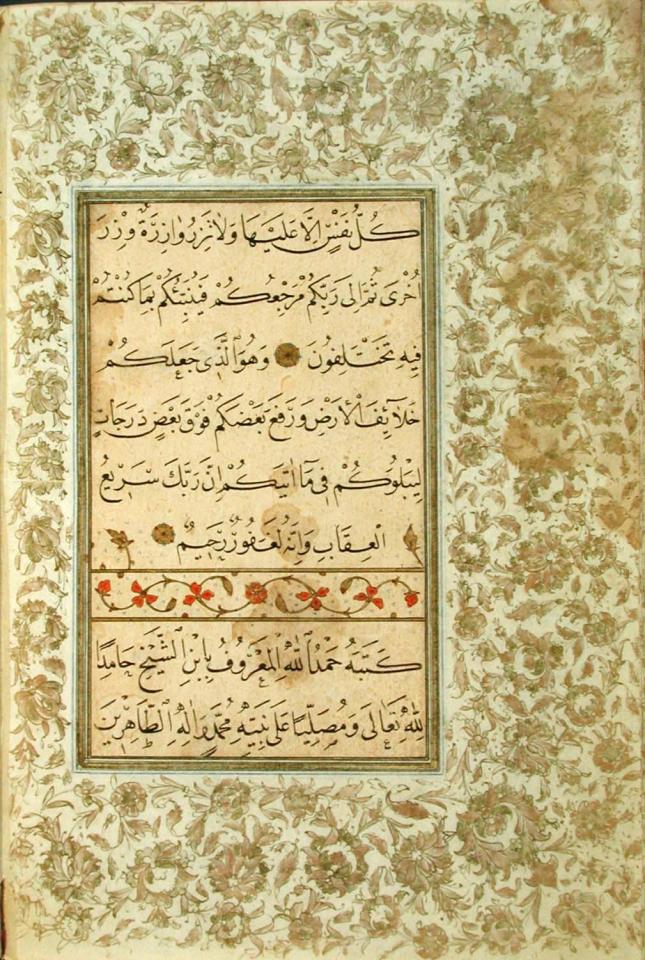 كُلُّ نَفْسٍ اِلَّا عَلَيْهَا وَلَا تَزِرُ وَازِرَةٌ وِزْرَ
اُخْرٰى ثُمَّ اِلٰى رَبِّكُمْ مَرْجِعُكُمْ فَيُنَبِّئُكُمْ بِمَا كُنْتُمْ
فِيهِ تَخْتَلِفُونَ وَهُوَ الَّذِي جَعَلَكُمْ
خَلَآئِفَ الْاَرْضِ وَرَفَعَ بَعْضَكُمْ فَوْقَ بَعْضٍ دَرَجَاتٍ
لِيَبْلُوَكُمْ فِي مَآ اٰتٰيكُمْ اِنَّ رَبَّكَ سَرِيعُ
الْعِقَابِ وَاِنَّهُ لَغَفُورٌ رَحِيمٌ
كَتَبَهُ حَمْدُ اللّٰهِ الْمَعْرُوفُ بِابْنِ الشَّيْخِ حَامِدًا
لِلّٰهِ تَعَالٰى وَمُصَلِّيًا عَلٰى نَبِيِّهِ مُحَمَّدٍ وَاٰلِهِ الطَّاهِرِينَ